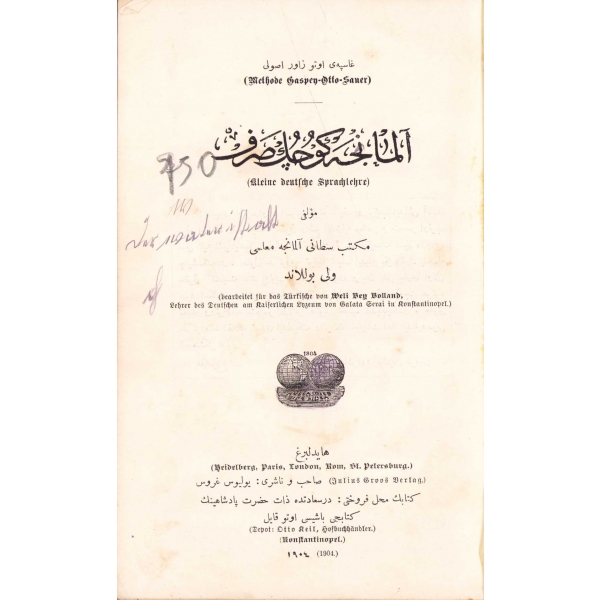 غاسپه‌ی اوتو زاور اصولی
(Methode Gaspey-Otto-Sauer)
آلمانجه كوچك صرف
750
(Kleine deutsche Sprachlehre)
مؤلفی
مكتب سلطانی آلمانجه معلمی
ولی بوللاند
(bearbeitet für das Türkische von Weli Bey Bolland,
Lehrer des Deutschen am Kaiserlichen Lyzeum von Galata Serai in Konstantinopel.)
1804
هایدلبرغ
(Heidelberg, Paris, London, Rom, St. Petersburg.)
صاحب و ناشری: یولیوس غروس (Julius Groos Verlag.)
كتابك محل فروختی: درسعادتده ذات حضرت پادشاهینك
كتابجی باشیسی اوتو قایل
(Depot: Otto Keil, Hofbuchhändler.)
(Konstantinopel.)
١٩٠٤ (1904.)